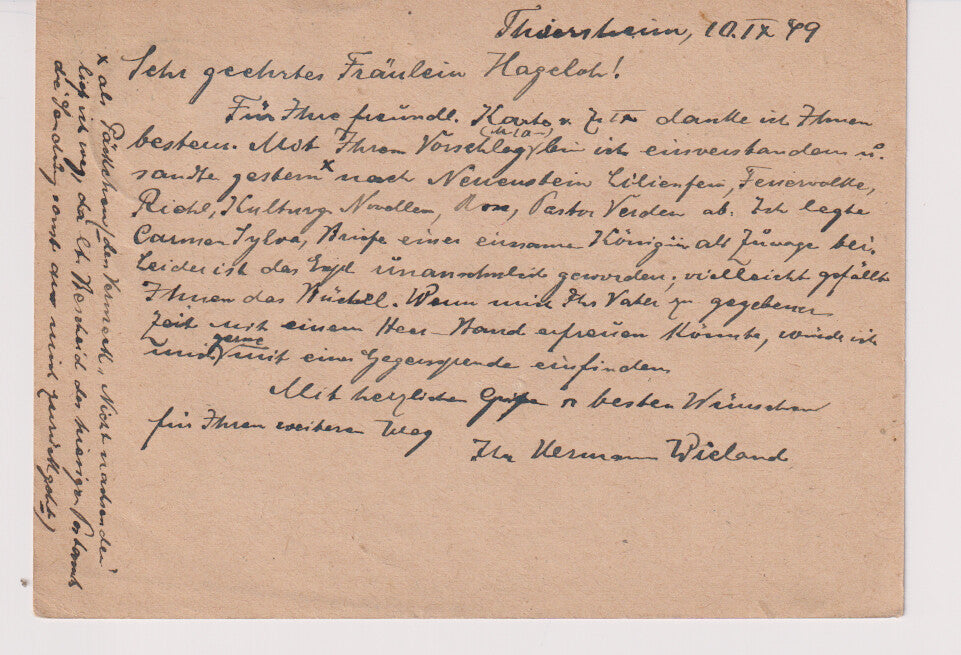 Thiersheim, 10. IX 49
Sehr geehrtes Fräulein Hageloh!
Für Ihre freundl. Karte v. 7. IX danke ich Ihnen
bestens. Mit Ihrem Vorschlag bin ich einverstanden u.
sandte gestern x nach Neuenstein Lilienfein, Feuerwolke,
Riehl, Kulturg. Novellen, Rose, Pastor Verden ab. Ich legte
Carmen Sylva, Briefe einer einsamen Königin als Zuwage bei.
Leider ist das Expl unansehnlich geworden; vielleicht gefällt
Ihnen das Büchel. Wenn mich Ihr Vater zu gegebener
Zeit mit einem Heer-Band erfreuen könnte, würde ich
mich gerne mit einer Gegenspende einfinden
Mit herzlichen Grüßen u besten Wünschen
für Ihren weiteren Weg
Ihr Hermann Wieland
x als Päckchen, den Vermerk: Nicht nachsenden!
ließ ich weg, da lt. Bescheid des hiesigen Postamts
die Sendung sonst an mich zurückgeht)